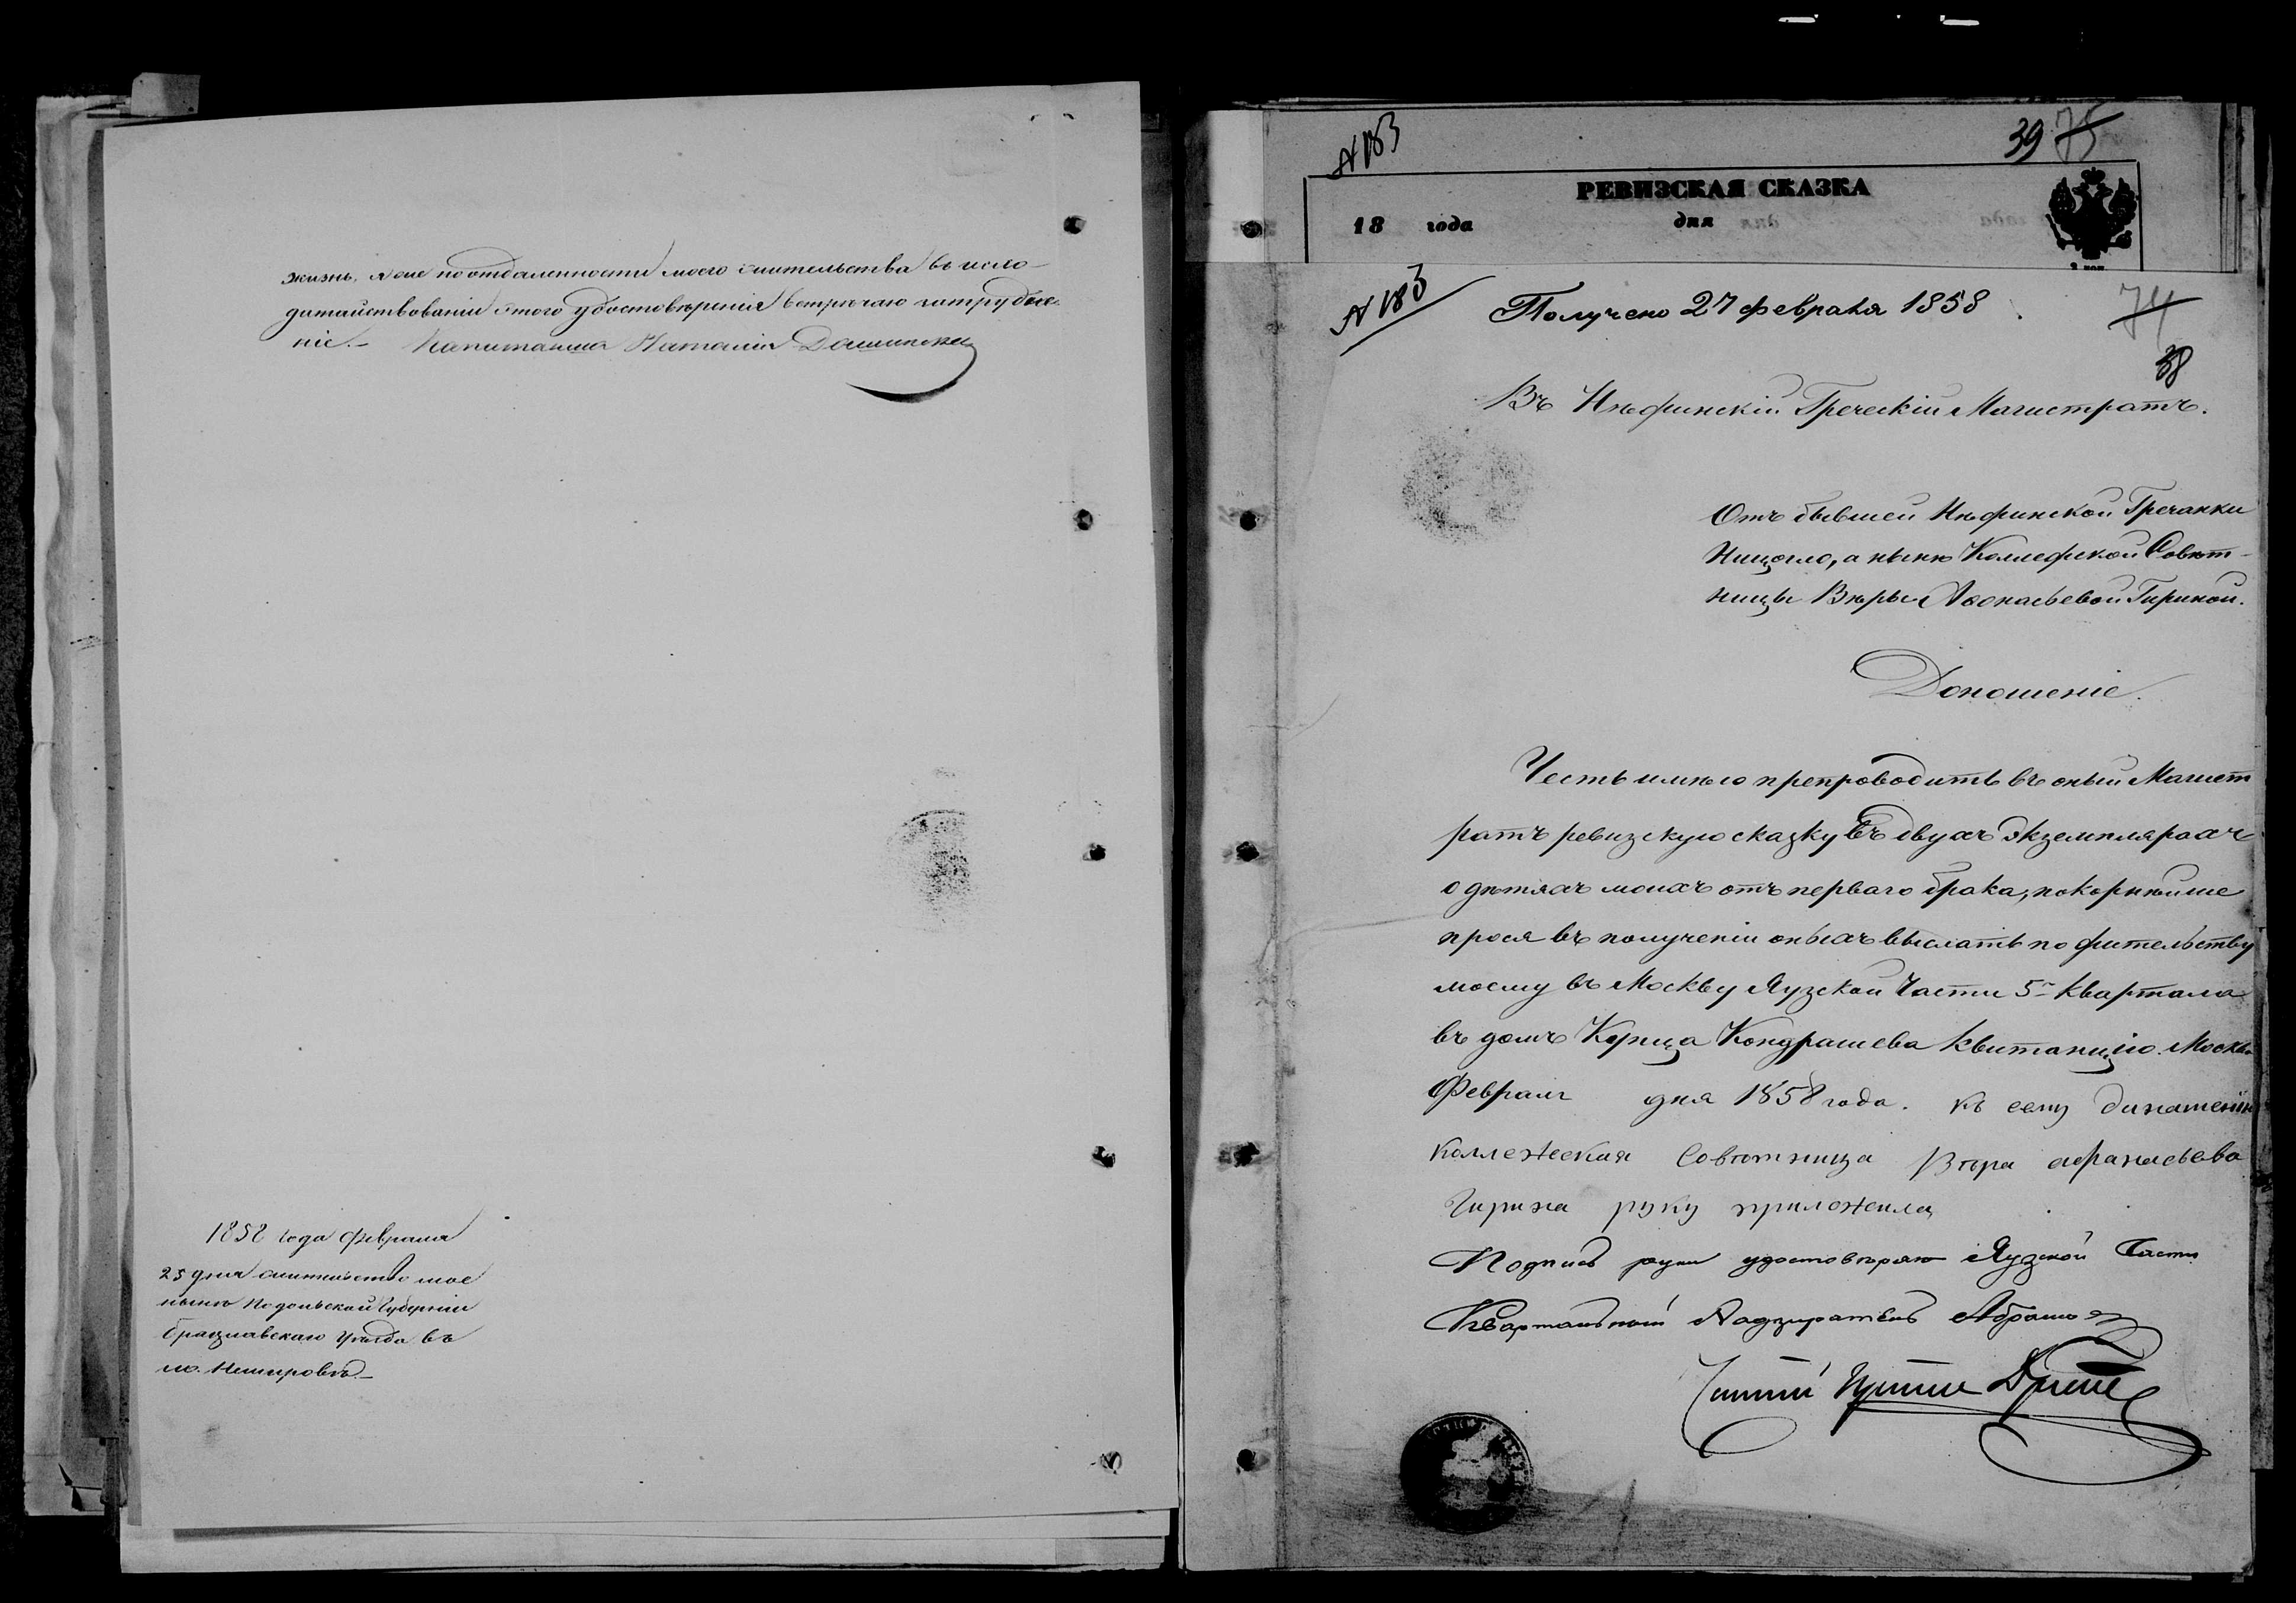 жизнь, я же по отдаленности моего жительства въ исхо-
датайствованіи этого удостовѣренія встрѣчаю затрудне-
ніе.- Капитанша Наталія Дашинская
1858 года Февраля
25 дня жительство мое
нынѣ Подольской Губерніи
Брацлавскаго Уѣзда въ
м. Немировѣ.-
N 183
39 75
РЕВИЗСКАЯ СКАЗКА
18 года дня
2 коп.
N 183
Получено 27 февраля 1858
74
38
Въ Нѣжинскій Греческій Магистратъ.
Отъ бывшей Нѣжинской Гречанки
а нынѣ Коллежской Совѣт-
ницы Вѣры Аѳонасьевой Гириной.
Доношеніе.
Честь имѣю препроводить въ оный Магист
ратъ ревизскую сказку въ двухъ экземплярахъ
о дѣтяхъ моихъ отъ перваго брака, покорнѣйше
прося въ полученіи оныхъ выслать по жительству
моему въ Москву Яузской Части 5го Квартала
въ домъ Купца Кондрашева Квитанцію. Москва
Февраля дня 1858 года. Къ сему
коллежская Совѣтница Вѣра афанасьева
Гирина руку приложила
Подпись руки удостовѣряю Яузской Части
Квартальный Надзиратель